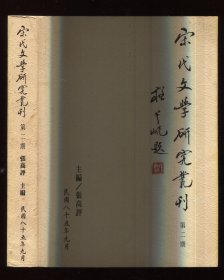 宋代文學研究叢刊
第二期
程千帆題
主編/張高評
民國八十五年九月
宋代文學研究叢刊 第二期 張高評 主編
民國八十五年九月